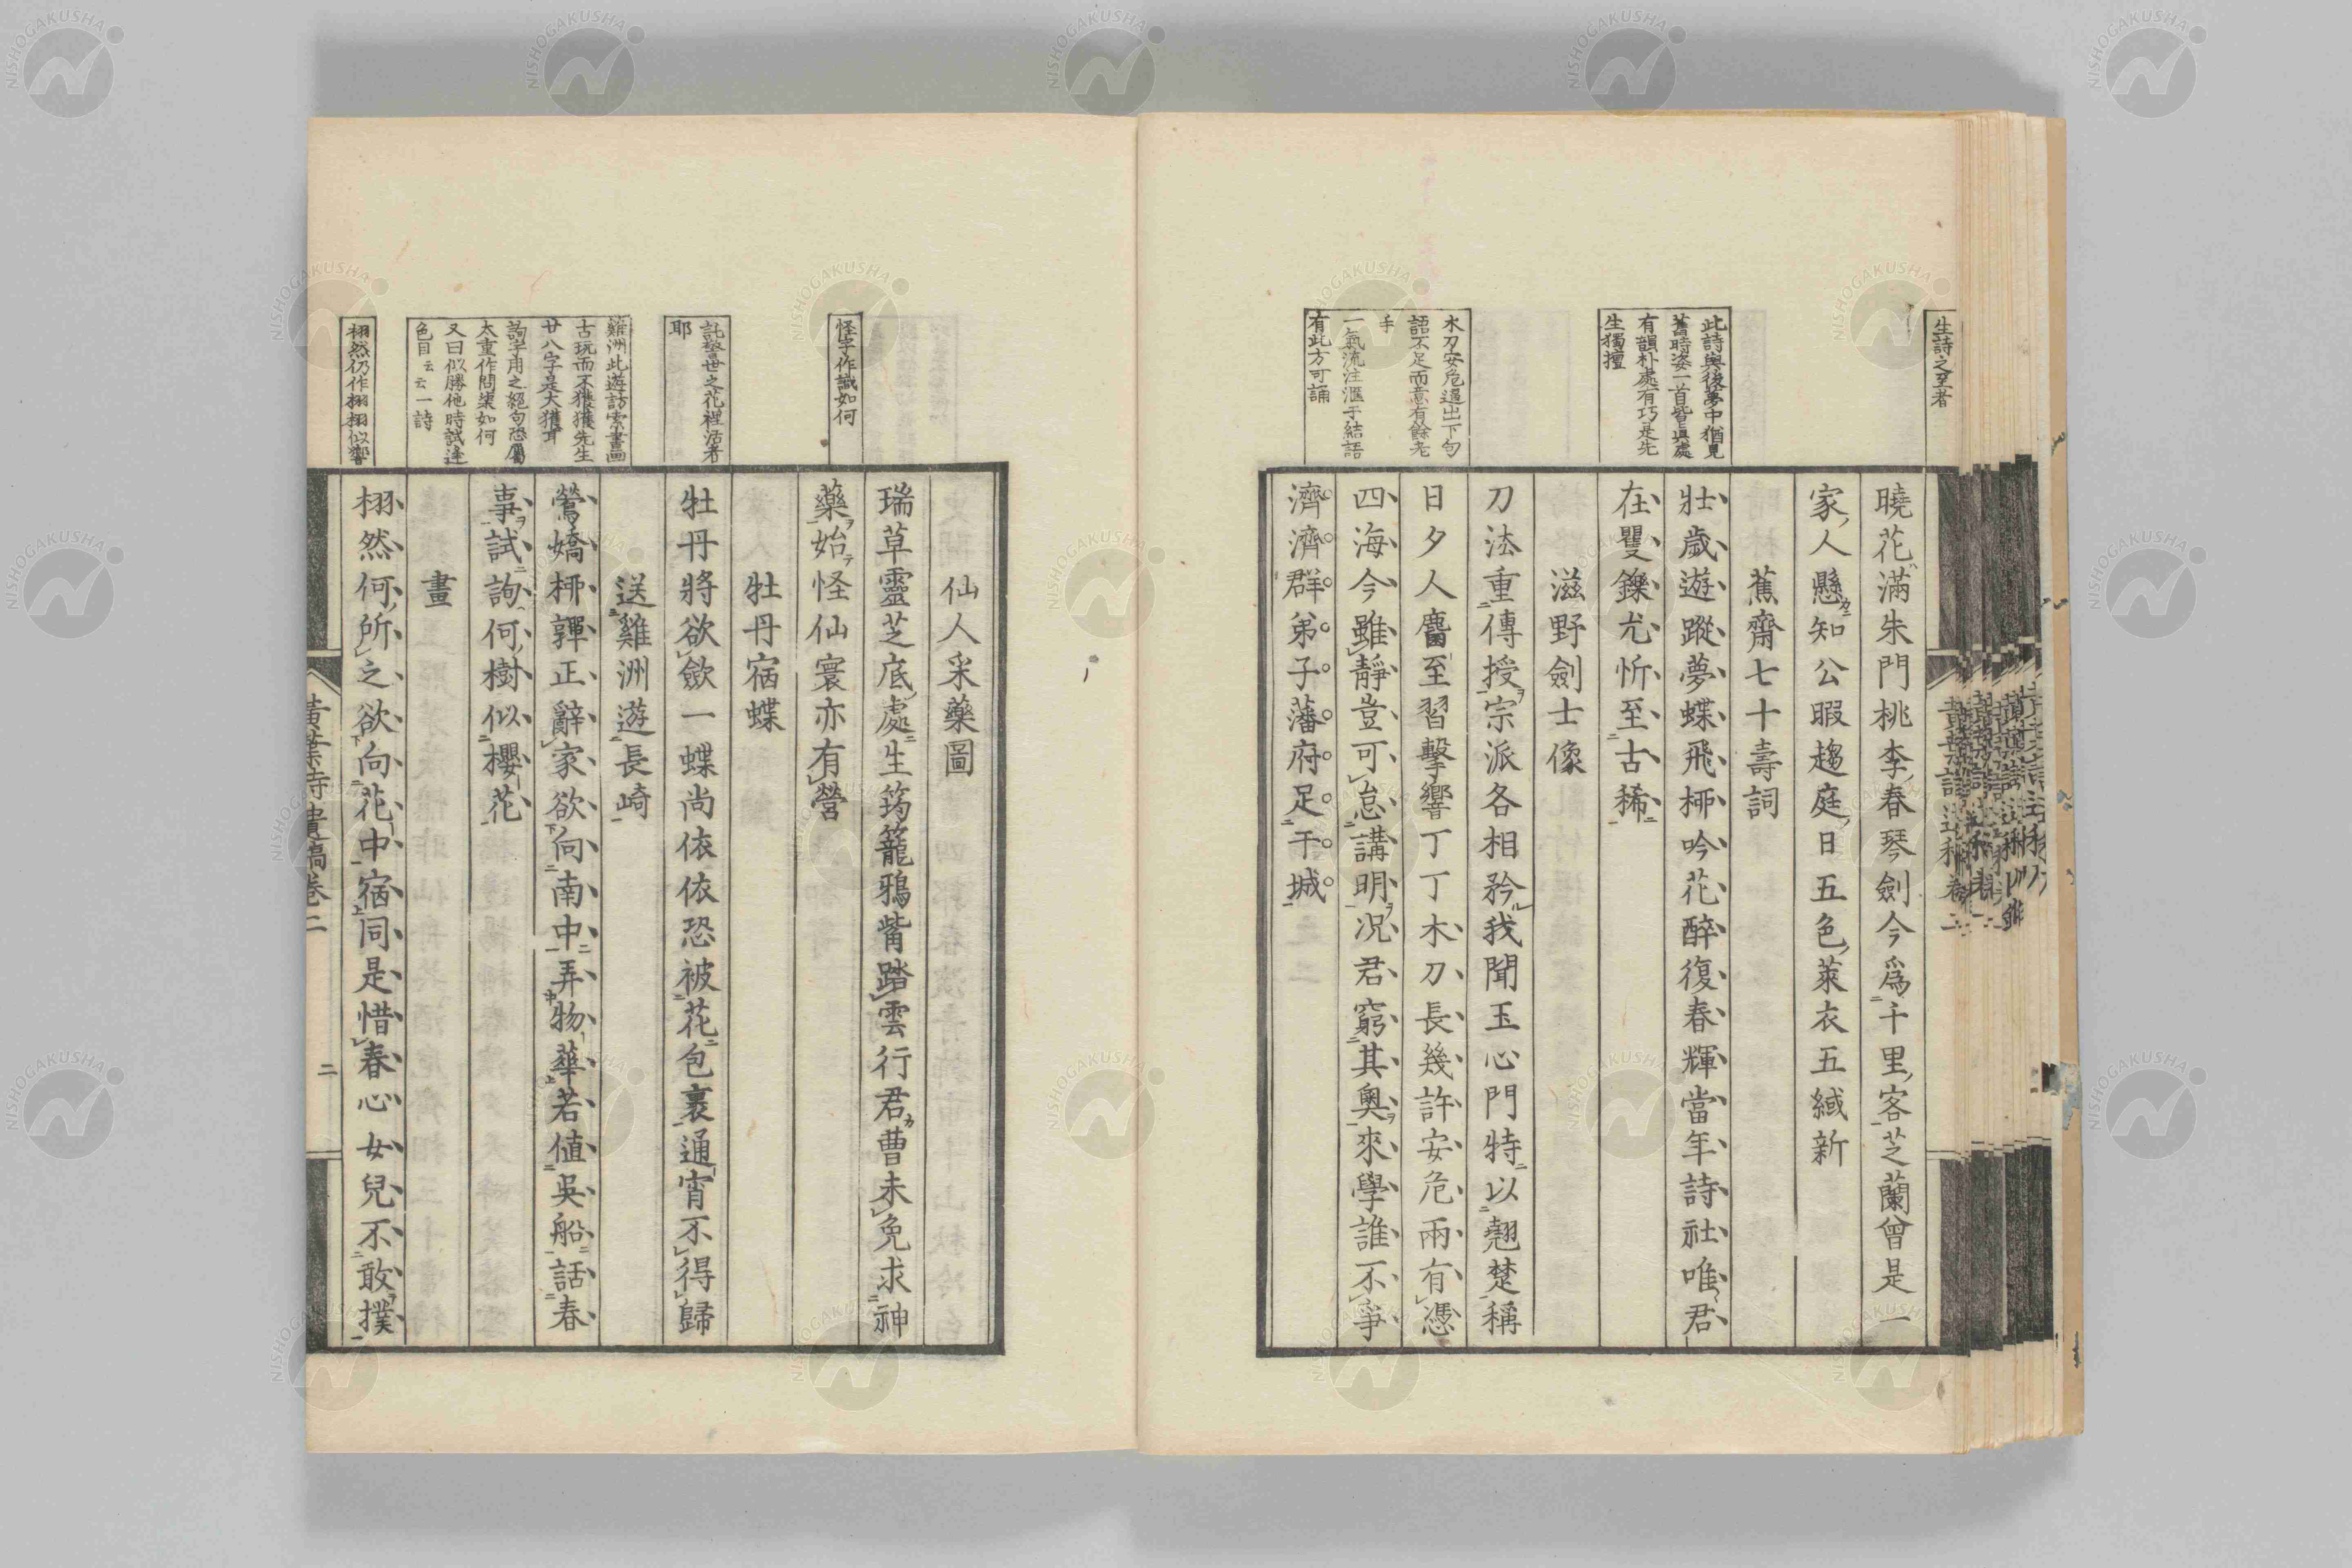 生詩之至者
曉花滿朱門桃李春琴劍今爲千里客芝蘭曾是一
家人懸知公暇趨庭日五色萊衣五緎新
蕉齋七十壽詞
此詩與後夢中猶見
舊時姿一首皆眞處
有韻朴處有巧是先
生獨擅
壯歲遊蹤夢蝶飛柳吟花醉復春輝當年詩社唯君
在矍鑠尤忻至古稀
滋野劍士像
刀法重傳授宗派各相矜我聞玉心門特以翹楚稱
木刀安危逼出下句
語不足而意有餘老
手
一氣流注滙于結語
有此方可誦
日夕人麕至習擊響丁丁木刀長幾許安危兩有憑
四海今雖靜豈可怠講明况君窮其奧來學誰不爭
濟濟群弟子藩府足干城
仙人采藥圖
瑞草靈芝底處生筠籠鴉觜踏雲行君曹未免求神
怪字作識如何
藥始怪仙寰亦有營
牡丹宿蝶
託警世之花裡活者
耶
牡丹將欲斂一蝶尚依依恐被花包裹通宵不得歸
送雞洲遊長崎
雞洲此遊訪索書畫
古玩而不獲獲先生
廿八字是大獲耳
詢字用之絕句恐屬
太重作問渠如何
又曰似勝他時試逢
色目云云一詩
鶯嬌柳嚲正辭家欲向南中弄物華若値吳船話春
事試詢何樹似櫻花
畫
栩然仍作栩栩似響
栩然何所之欲向花中宿同是惜春心女兒不敢撲
黃葉詩遺稿卷二
二
NISHOGAKUSHA